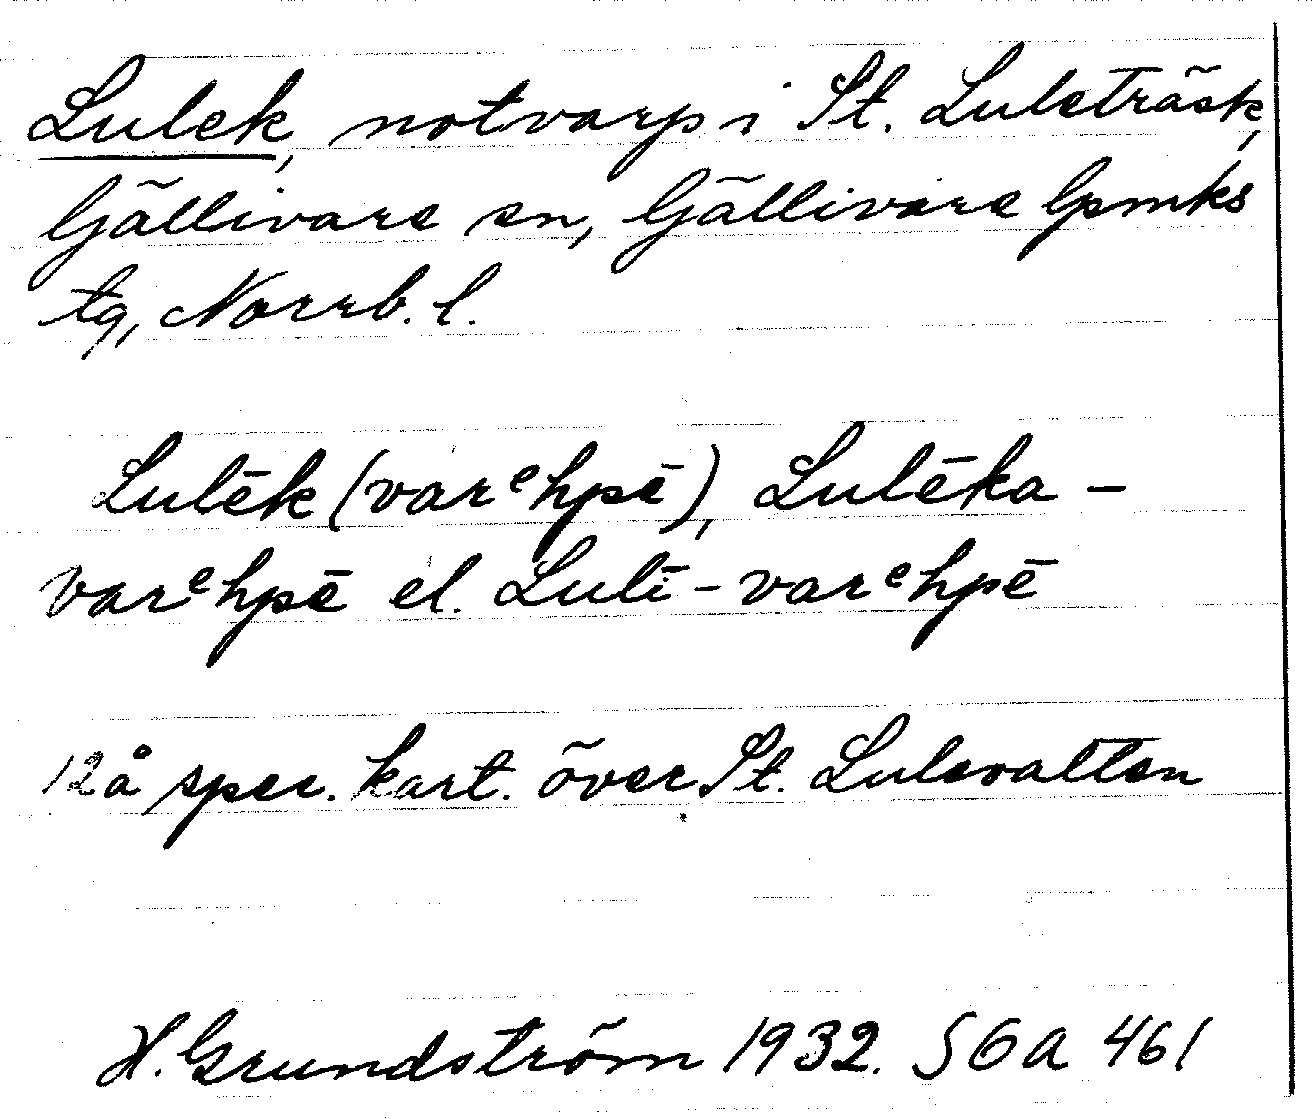 Lulek, notvarp i St. Luleträsk,
Gällivare sn, Gällivare lpmks
tg, Norrb. l.
Lulēk (varᵉhpē), Lulēka-
varᵉhpē el. Luli-varᵉhpē
12å spec. kart. över St. Lulevatten
H. Grundström 1932. SGA 461